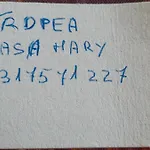 ŢRDPEA
ASA MARY
317571 227